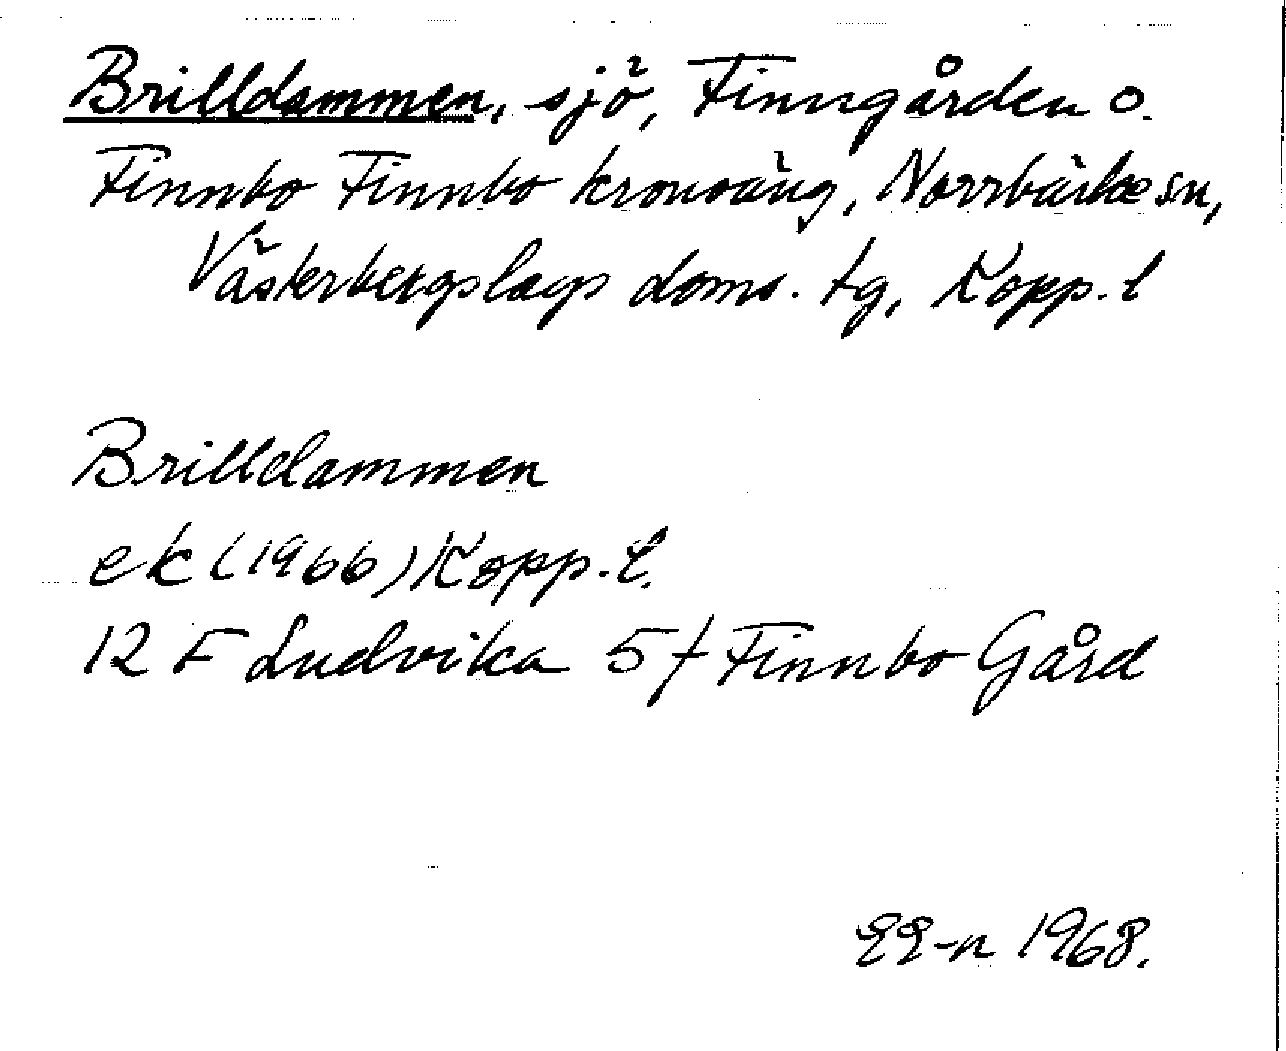 Brilldammen, sjö, Finngården o.
Finnbo Finnbo kronoäng, Norrbärke sn,
Västerbergslags doms. tg, Kopp. l
Brilldammen
ek (1966) Kopp. l.
12 F Ludvika 5 f Finnbo Gård
EE-n 1968.